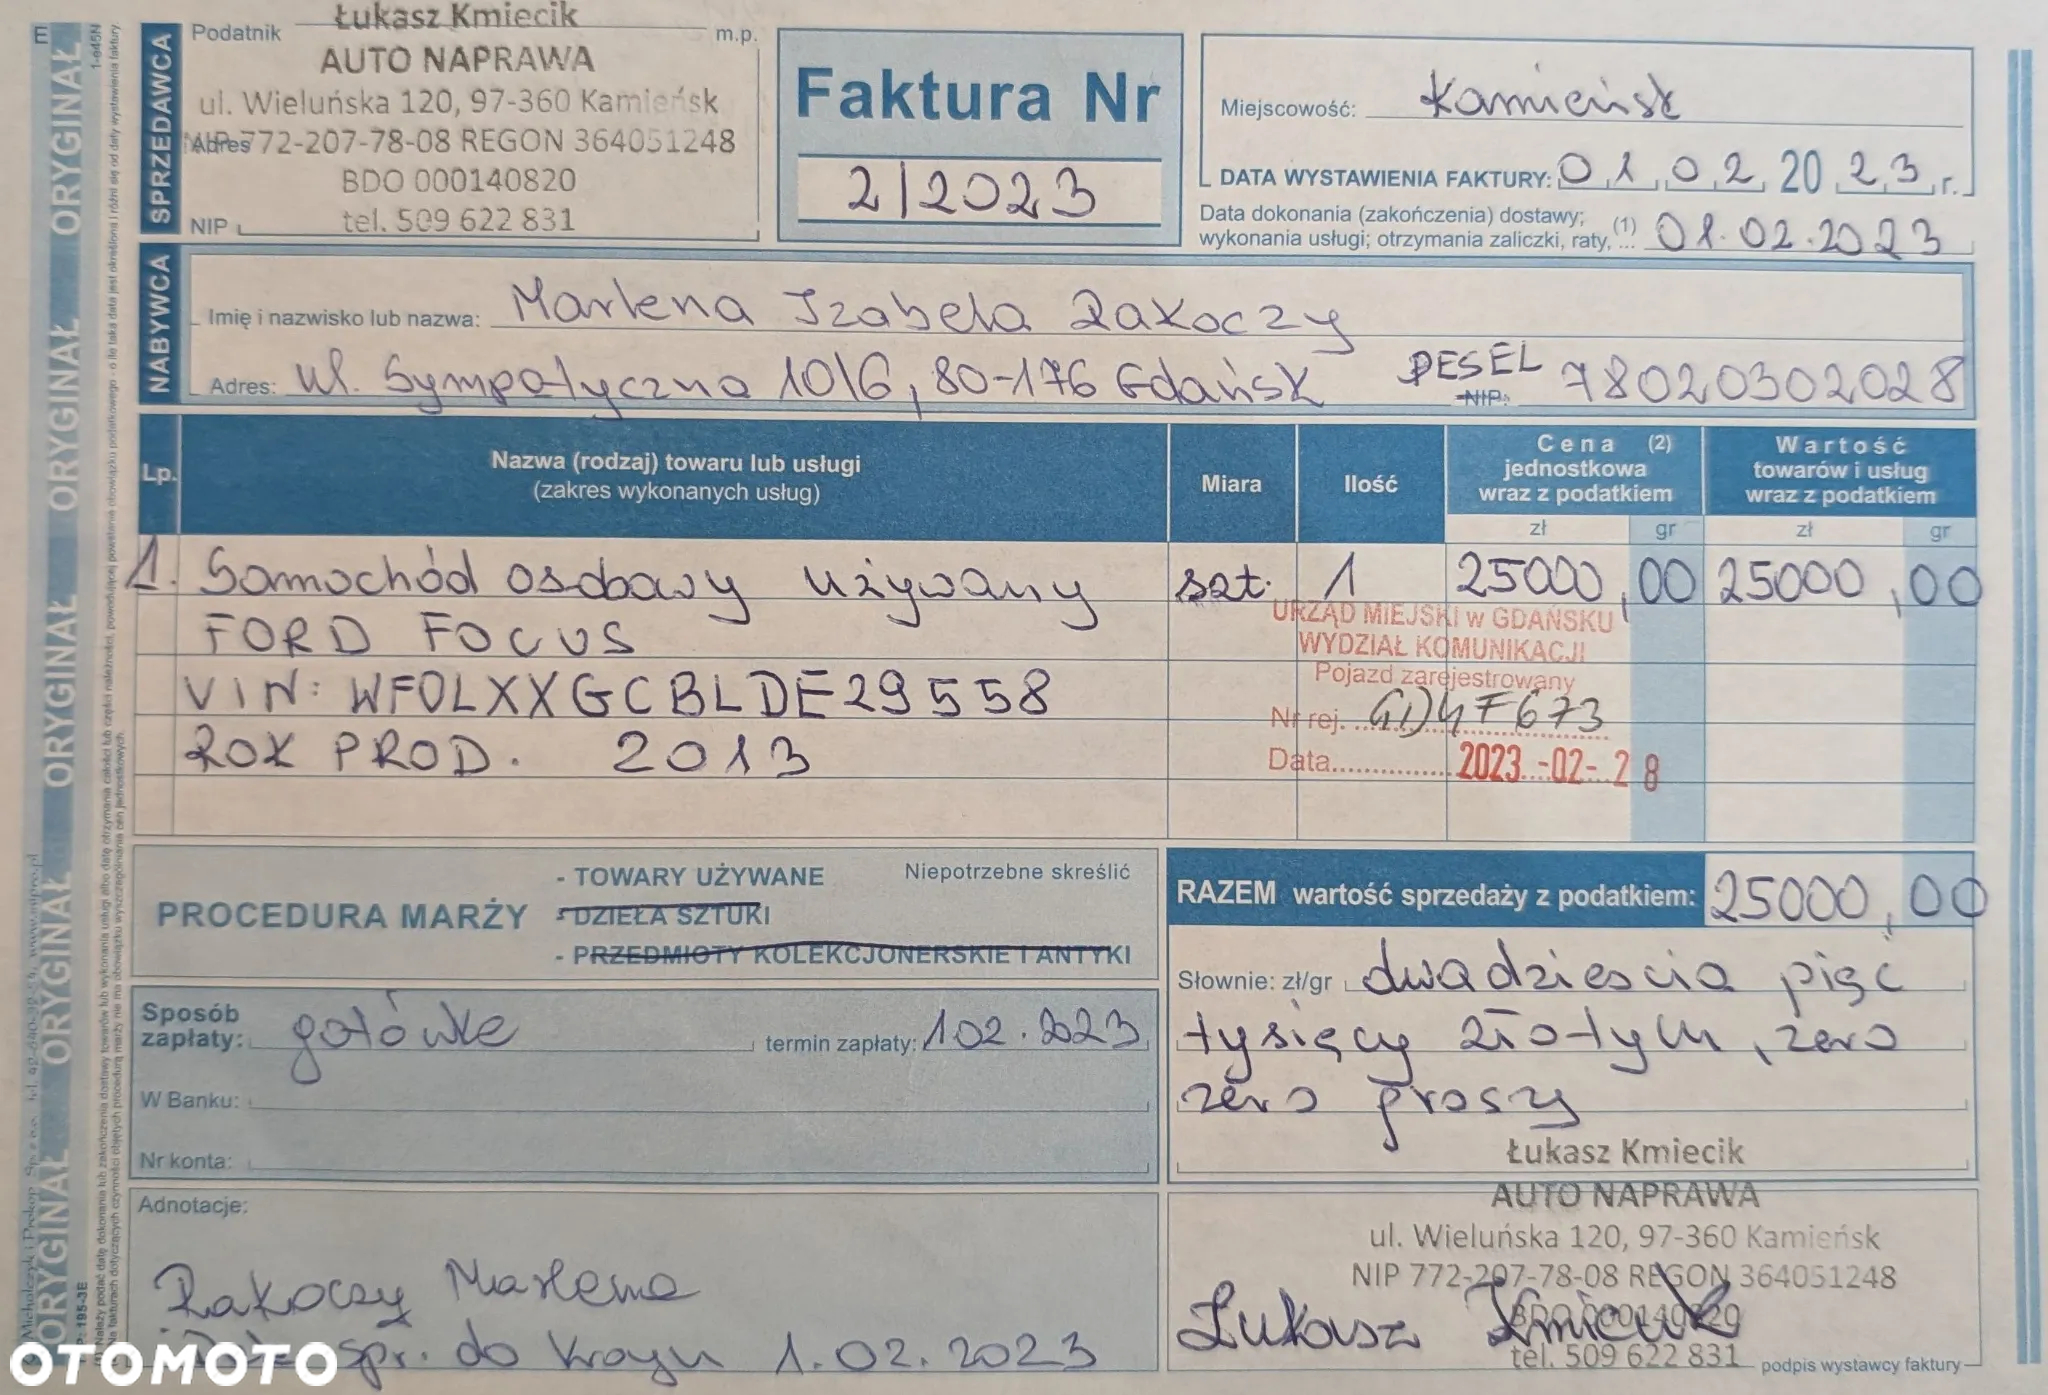 E
1-945N
ORYGINAŁ ORYGINAŁ ORYGINAŁ ORYGINAŁ ORYGINAŁ
SPRZEDAWCA
Podatnik
m.p.
Łukasz Kmiecik
AUTO NAPRAWA
ul. Wieluńska 120, 97-360 Kamieńsk
Adres
NIP 772-207-78-08 REGON 364051248
BDO 000140820
NIP
tel. 509 622 831
Faktura Nr
2/2023
Miejscowość: Kamieńsk
DATA WYSTAWIENIA FAKTURY: 01.02.2023 r.
Data dokonania (zakończenia) dostawy; (1)
wykonania usługi; otrzymania zaliczki, raty, ... 01.02.2023
NABYWCA
Imię i nazwisko lub nazwa: Marlena Izabela Rakoczy
Adres: ul. Sympatyczna 10/6, 80-176 Gdańsk PESEL NIP: 78020302028
Lp. Nazwa (rodzaj) towaru lub usługi (zakres wykonanych usług) Miara Ilość Cena (2) jednostkowa wraz z podatkiem Wartość towarów i usług wraz z podatkiem
zł gr zł gr
1. Samochód osobowy używany szt. 1 25000,00 25000,00
FORD FOCUS
VIN: WF0LXXGCBLDE29558
ROK PROD. 2013
URZĄD MIEJSKI w GDAŃSKU
WYDZIAŁ KOMUNIKACJI
Pojazd zarejestrowany
Nr rej. GD4F673
Data 2023-02-28
PROCEDURA MARŻY
Niepotrzebne skreślić
- TOWARY UŻYWANE
- DZIEŁA SZTUKI
- PRZEDMIOTY KOLEKCJONERSKIE I ANTYKI
RAZEM wartość sprzedaży z podatkiem: 25000,00
Słownie: zł/gr dwadzieścia pięć
tysięcy złotych, zero
zero groszy
Sposób zapłaty: gotówka termin zapłaty: 1.02.2023
W Banku:
Nr konta:
Adnotacje:
Rakoczy Marlena
spr. do kraju 1.02.2023
Łukasz Kmiecik
AUTO NAPRAWA
ul. Wieluńska 120, 97-360 Kamieńsk
NIP 772-207-78-08 REGON 364051248
BDO 000140820
tel. 509 622 831
Łukasz Kmiecik
podpis wystawcy faktury
OTOMOTO